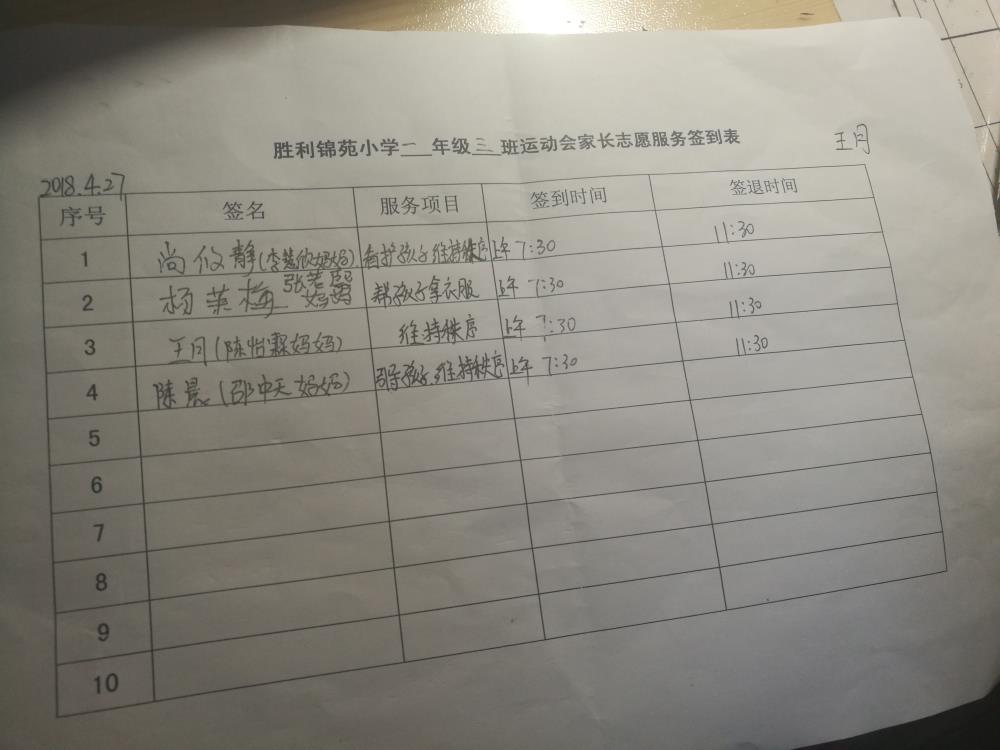 胜利锦苑小学二年级三班运动会家长志愿服务签到表
王月
2018.4.27
序号 签名 服务项目 签到时间 签退时间
1 尚攸静(李慧攸妈妈) 看护孩子维持秩序 上午7:30 11:30
2 杨荣梅 妈妈 帮孩子拿衣服 上午7:30 11:30
3 王月(陈怡霖妈妈) 维持秩序 上午7:30 11:30
4 陈晨(邵中天妈妈) 引导孩子,维持秩序 上午7:30 11:30
5
6
7
8
9
10